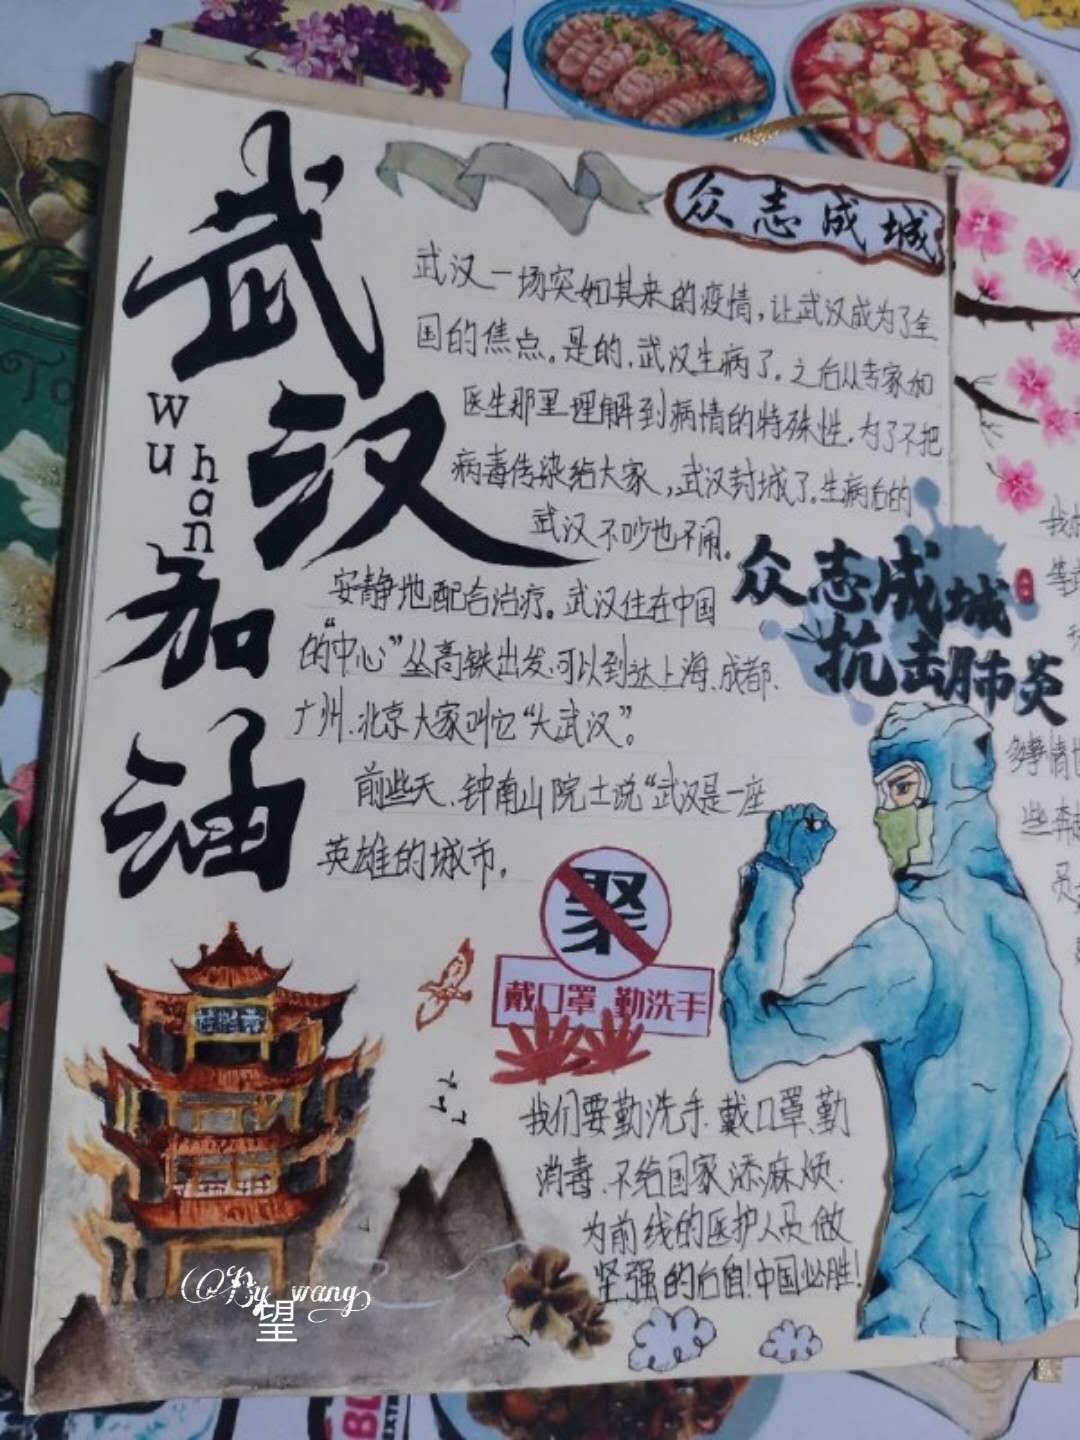 武汉
wu han
加油
众志成城
武汉一场突如其来的疫情,让武汉成为了全
国的焦点。是的,武汉生病了。之后从专家和
医生那里理解到病情的特殊性,为了不把
病毒传染给大家,武汉封城了。生病后的
武汉不吵也不闹。
安静地配合治疗。武汉住在中国
的“中心”丛高铁出发,可以到达上海、成都、
广州、北京大家叫它“大武汉”。
前些天、钟南山院士说“武汉是一座
英雄的城市。
众志成城
抗击肺炎
聚
戴口罩 勤洗手
我们要勤洗手、戴口罩勤
消毒、不给国家添麻烦、
为前线的医护人员做
坚强的后盾!中国必胜!
By wang
望